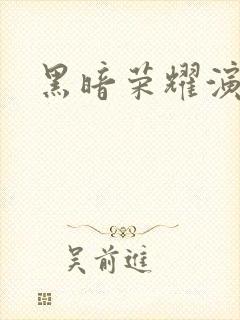 黑暗荣耀演
吴前進